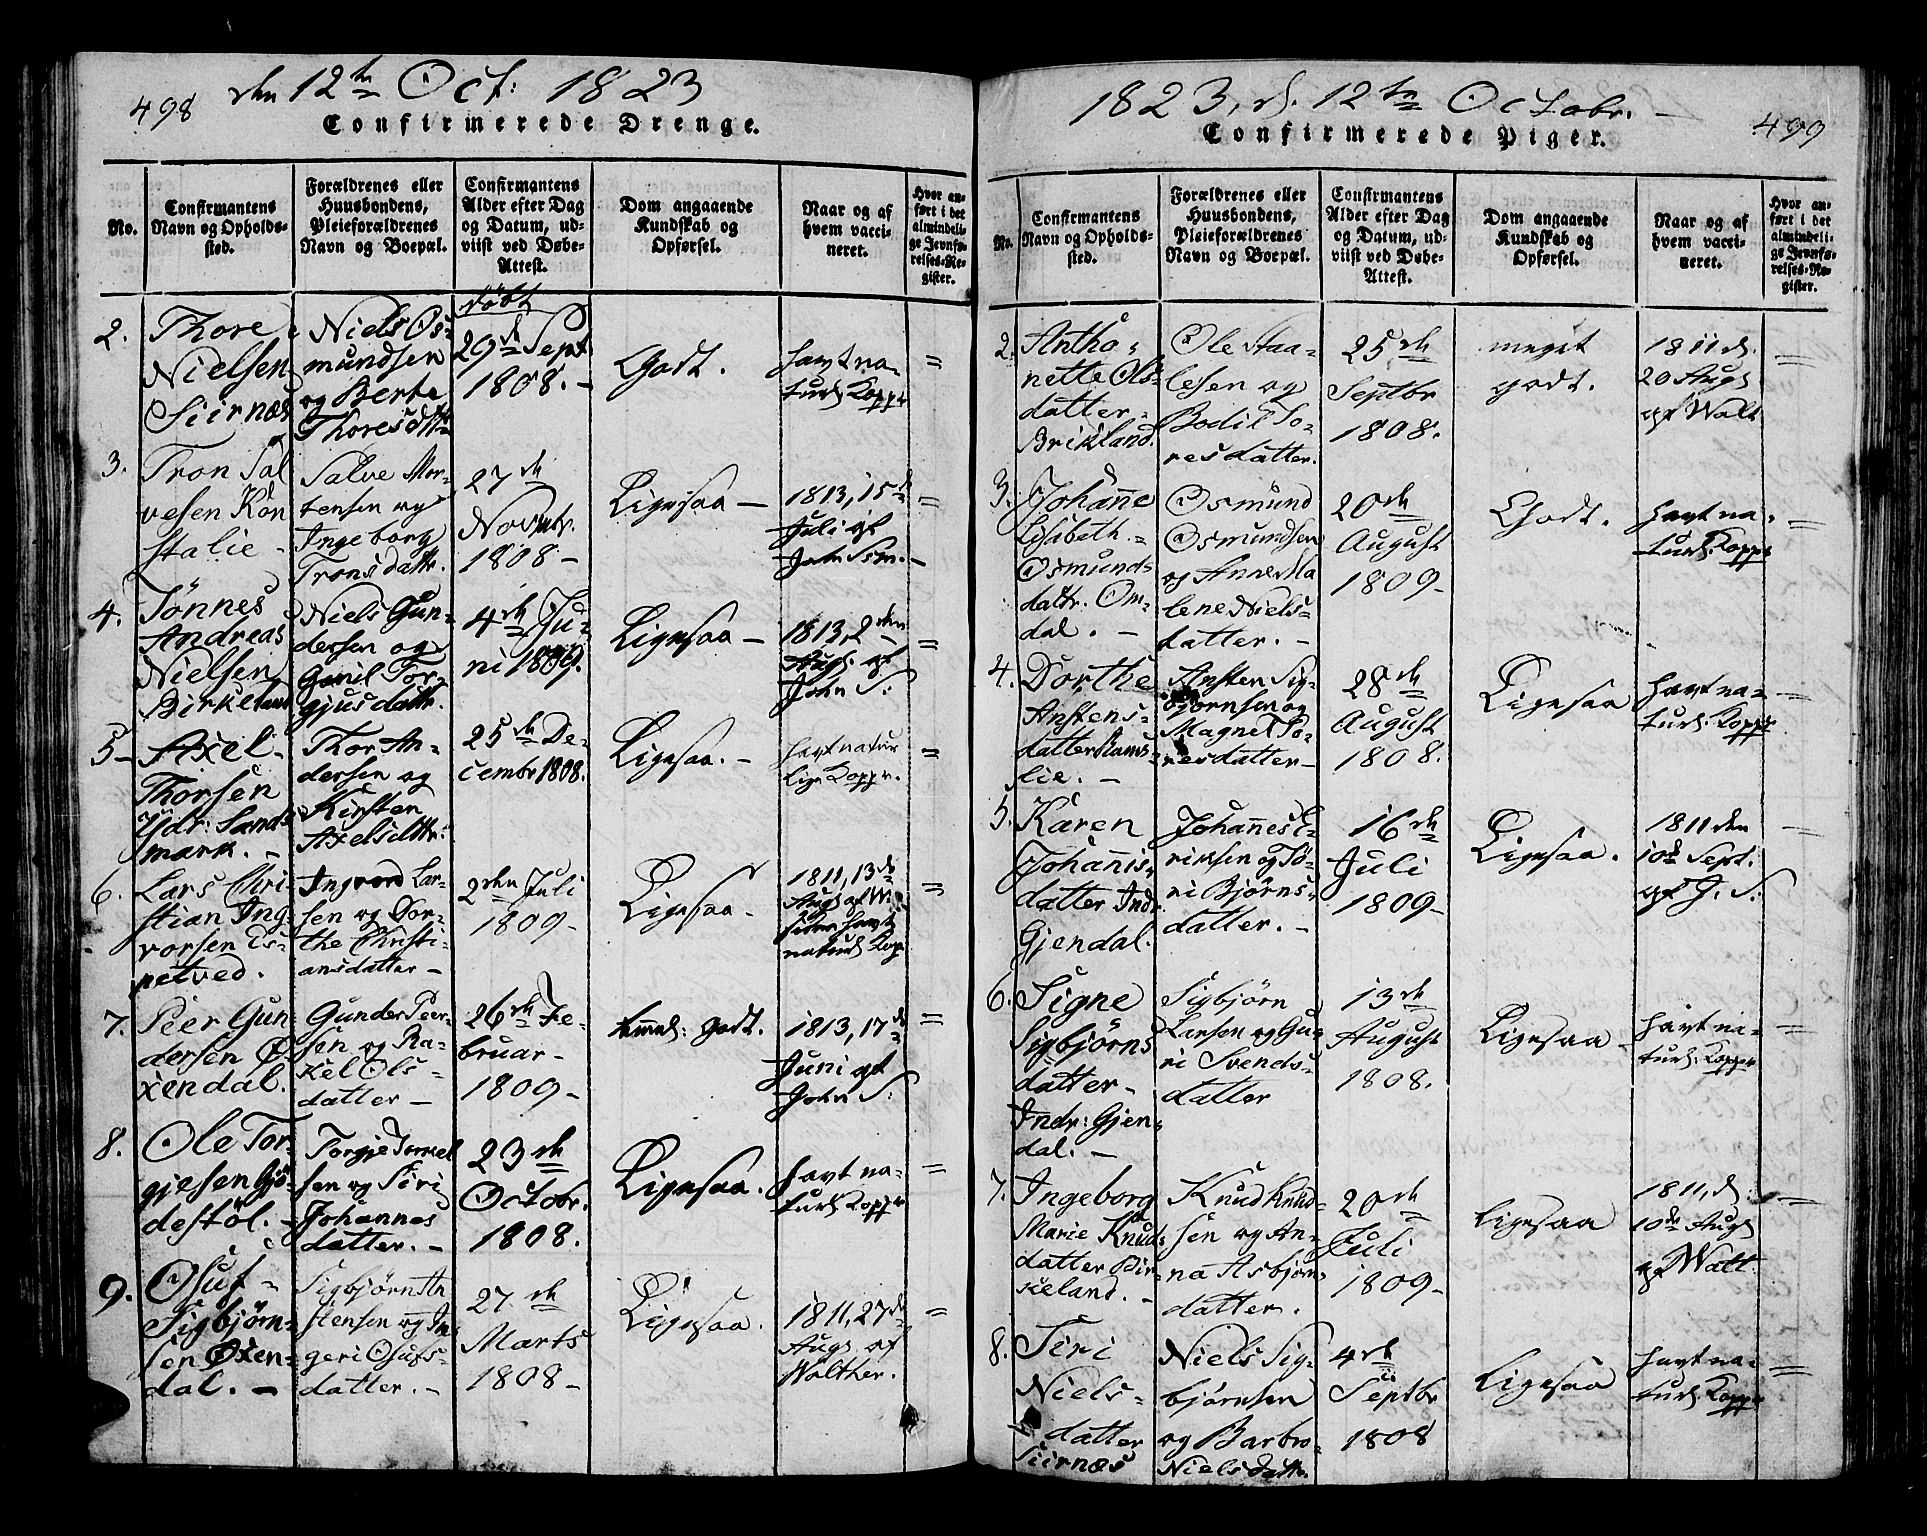 498
den 12te Oct: 1823
Confirmerede Drenge.
No.
Confirmantens
Navn og Opholds-
sted.
Forældrenes eller
Huusbondens,
Pleieforældrenes
Navn og Boepæl.
Confirmantens
Alder efter Dag
og Datum, ud-
viist ved Døbe-
Attest.
Dom angaaende
Kundskab og
Opførsel.
Naar og af
hvem vacci-
neret.
Hvor an-
ført i det
almindeli-
ge Jevnfø-
relses-Re-
gister.
2.
Thore
Nielsen
Siirnæs
Niels Os-
mundsen
og Berte
Thoresdttr
døbt
29de Sept
1808. -
Godt.
havt na-
turl. Kopper
=
3.
Tron Sal
vesen Kon
stalie -
Salve Mor-
tensen og
Ingeborg
Tronsdattr.
27de
Novbr.
1808 -
Ligesaa -
1813, 15de
Juli af
John Ssen. -
=
4.
Tønnes
Andreas
Nielsen
Birkeland
Niels Gun-
dersen og
Gunil Tor-
gjusdattr.
4de Ju-
ni 1809.
Ligesaa -
1813, 2den
Augs. af
John S:
=
5 -
Axel -
Thorsen
Ydr: Sands
mark. -
Thor An-
dersen og
Kirsten
Axelsdttr:
25de De-
cembr 1808.
Ligesaa. -
havt natur
lige Kopper.
=
6.
Lars Chri-
stian Ing-
vorsen Es-
petved.
Ingvord Lar-
sen og Dor-
the Christi-
ansdatter -
2den Juli
1809 -
Ligesaa.
1811, 13de
Augs af W:
siden havt
naturl Kopp
=
7.
Peer Gun
dersen Ø-
xendal.
Gunder Peer-
sen og Ra-
kel Ols -
datter -
26de Fe-
bruar -
1809 -
temmel: godt.
1813, 17de
Juni af
John S:
=
8.
Ole Tor-
gjesen Gjø-
destøl. -
Torgje Torkel
sen og Siri
Johannes
datter. -
23de
Octobr.
1808.
Ligesaa.
havt na-
turl Kopper
=
9.
Osuf -
Sigbjørn-
sen Øxen-
dal. -
Sigbjørn An
stensen og In-
geri Osufs-
datter. -
27de
Marts
1808 -
Ligesaa.
1811, 27de
Augs. af
Walther.
=
1823, d. 12te Octobr. -
499
Confirmerede Piger.
No.
Confirmantens
Navn og Opholds-
sted.
Forældrenes eller
Huusbondens,
Pleieforældrenes
Navn og Boepæl.
Confirmantens
Alder efter Dag
og Datum, ud-
viist ved Døbe-
Attest.
Dom angaaende
Kundskab og
Opførsel.
Naar og af
hvem vacci-
neret.
Hvor an-
ført i det
almindeli-
ge Jevnfø-
relses-Re-
gister.
2.
Antho-
nette Ols-
datter -
Brikland.
Ole Staa-
lesen og
Bodil To-
resdatter.
25de
Septbr
1808.
meget
godt.
1811 d.
20 Augs
af Walt
=
3.
Johanne
Lisibeth. -
Osmunds
dattr. Om-
dal. -
Osmund
Osmundsen
og Anne Ma
lene Niels-
datter. -
20de
August
1809 -
Godt.
havt na-
turl. Kopper
=
4.
Dorthe
Anstens-
datter Rams-
lie. -
Ansten Sig-
bjørnsen og
Magnel To-
resdatter -
28de
August
1808.
Ligesaa
havt na-
turl. Kopper
=
5.
Karen
Johannis-
datter Indr
Gjendal.
Johannes E-
riksen og Tø-
ri Bjørns-
datter. -
16de
Juli
1809 -
Ligesaa.
1811 den
10de Sept.
af J. S:
=
6.
Signe
Sigbjørns
datter -
Indr: Gjen-
dal. -
Sigbjørn
Larsen og Gu-
ri Svends-
datter
13de
August
1808.
Ligesaa -
havt na-
turl. Kopper
=
7.
Ingeborg
Marie Knuds
datter Bir-
keland. -
Knud Knud-
sen og An-
na Asbjørns
datter.
20de
Juli
1809 -
Ligesaa
1811, d.
10de Augs
af Walt.
=
8.
Siri
Niels -
datter
Siirnæs
Niels Sig-
bjørnsen
og Barbro-
Nielsdattr.
4de
Septbr
1808
Ligesaa
havt na-
turl. Kopper
=